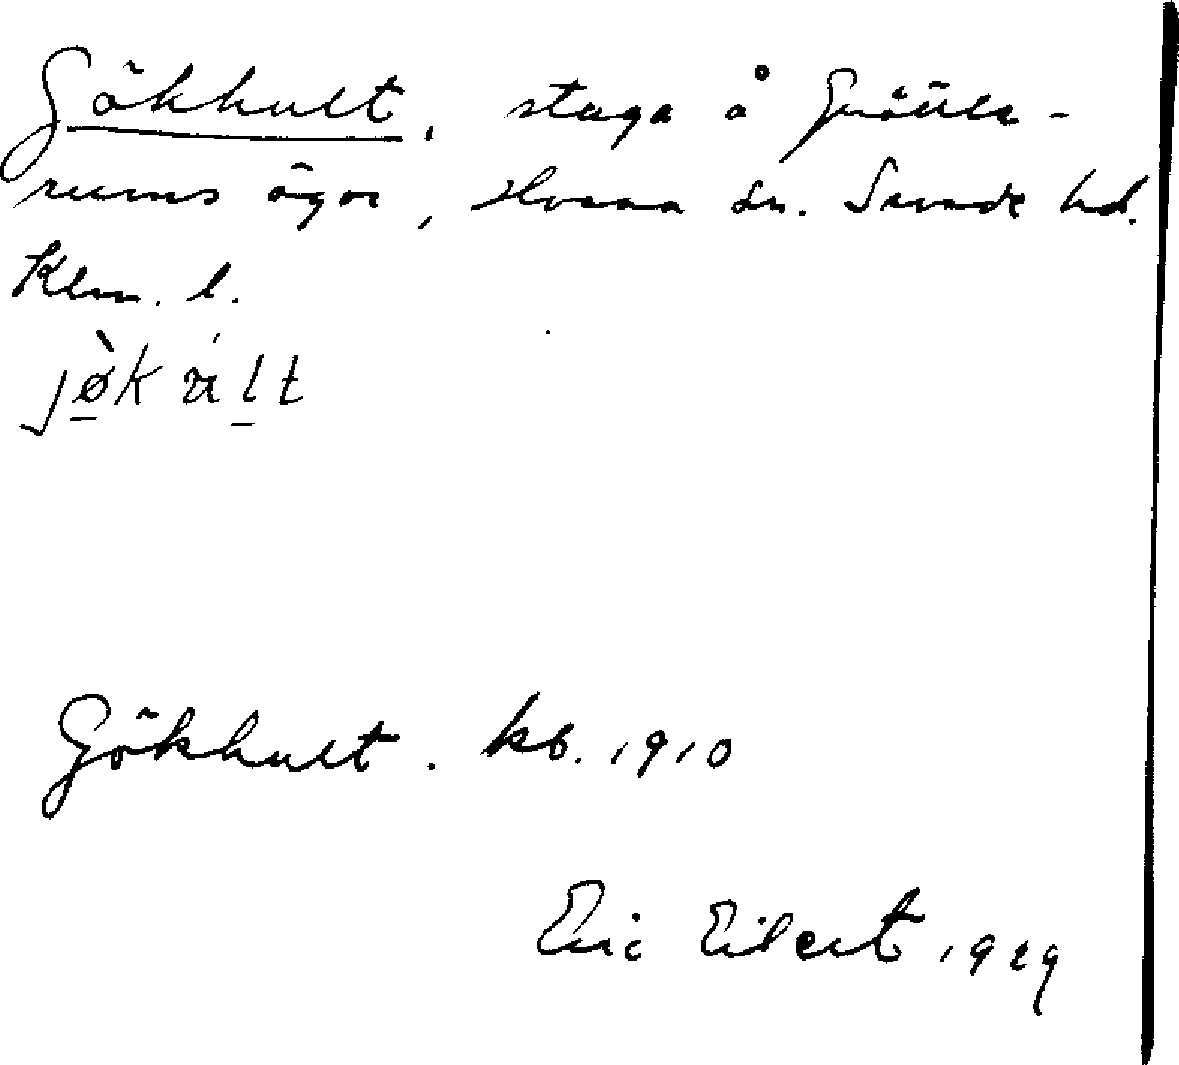 Gökhult, stuga å Gnöttle-
rums ägor, Hvena sn. Sevede hd.
Klm. l.
Gökhult. kb. 1910
Eric Eilert 1929